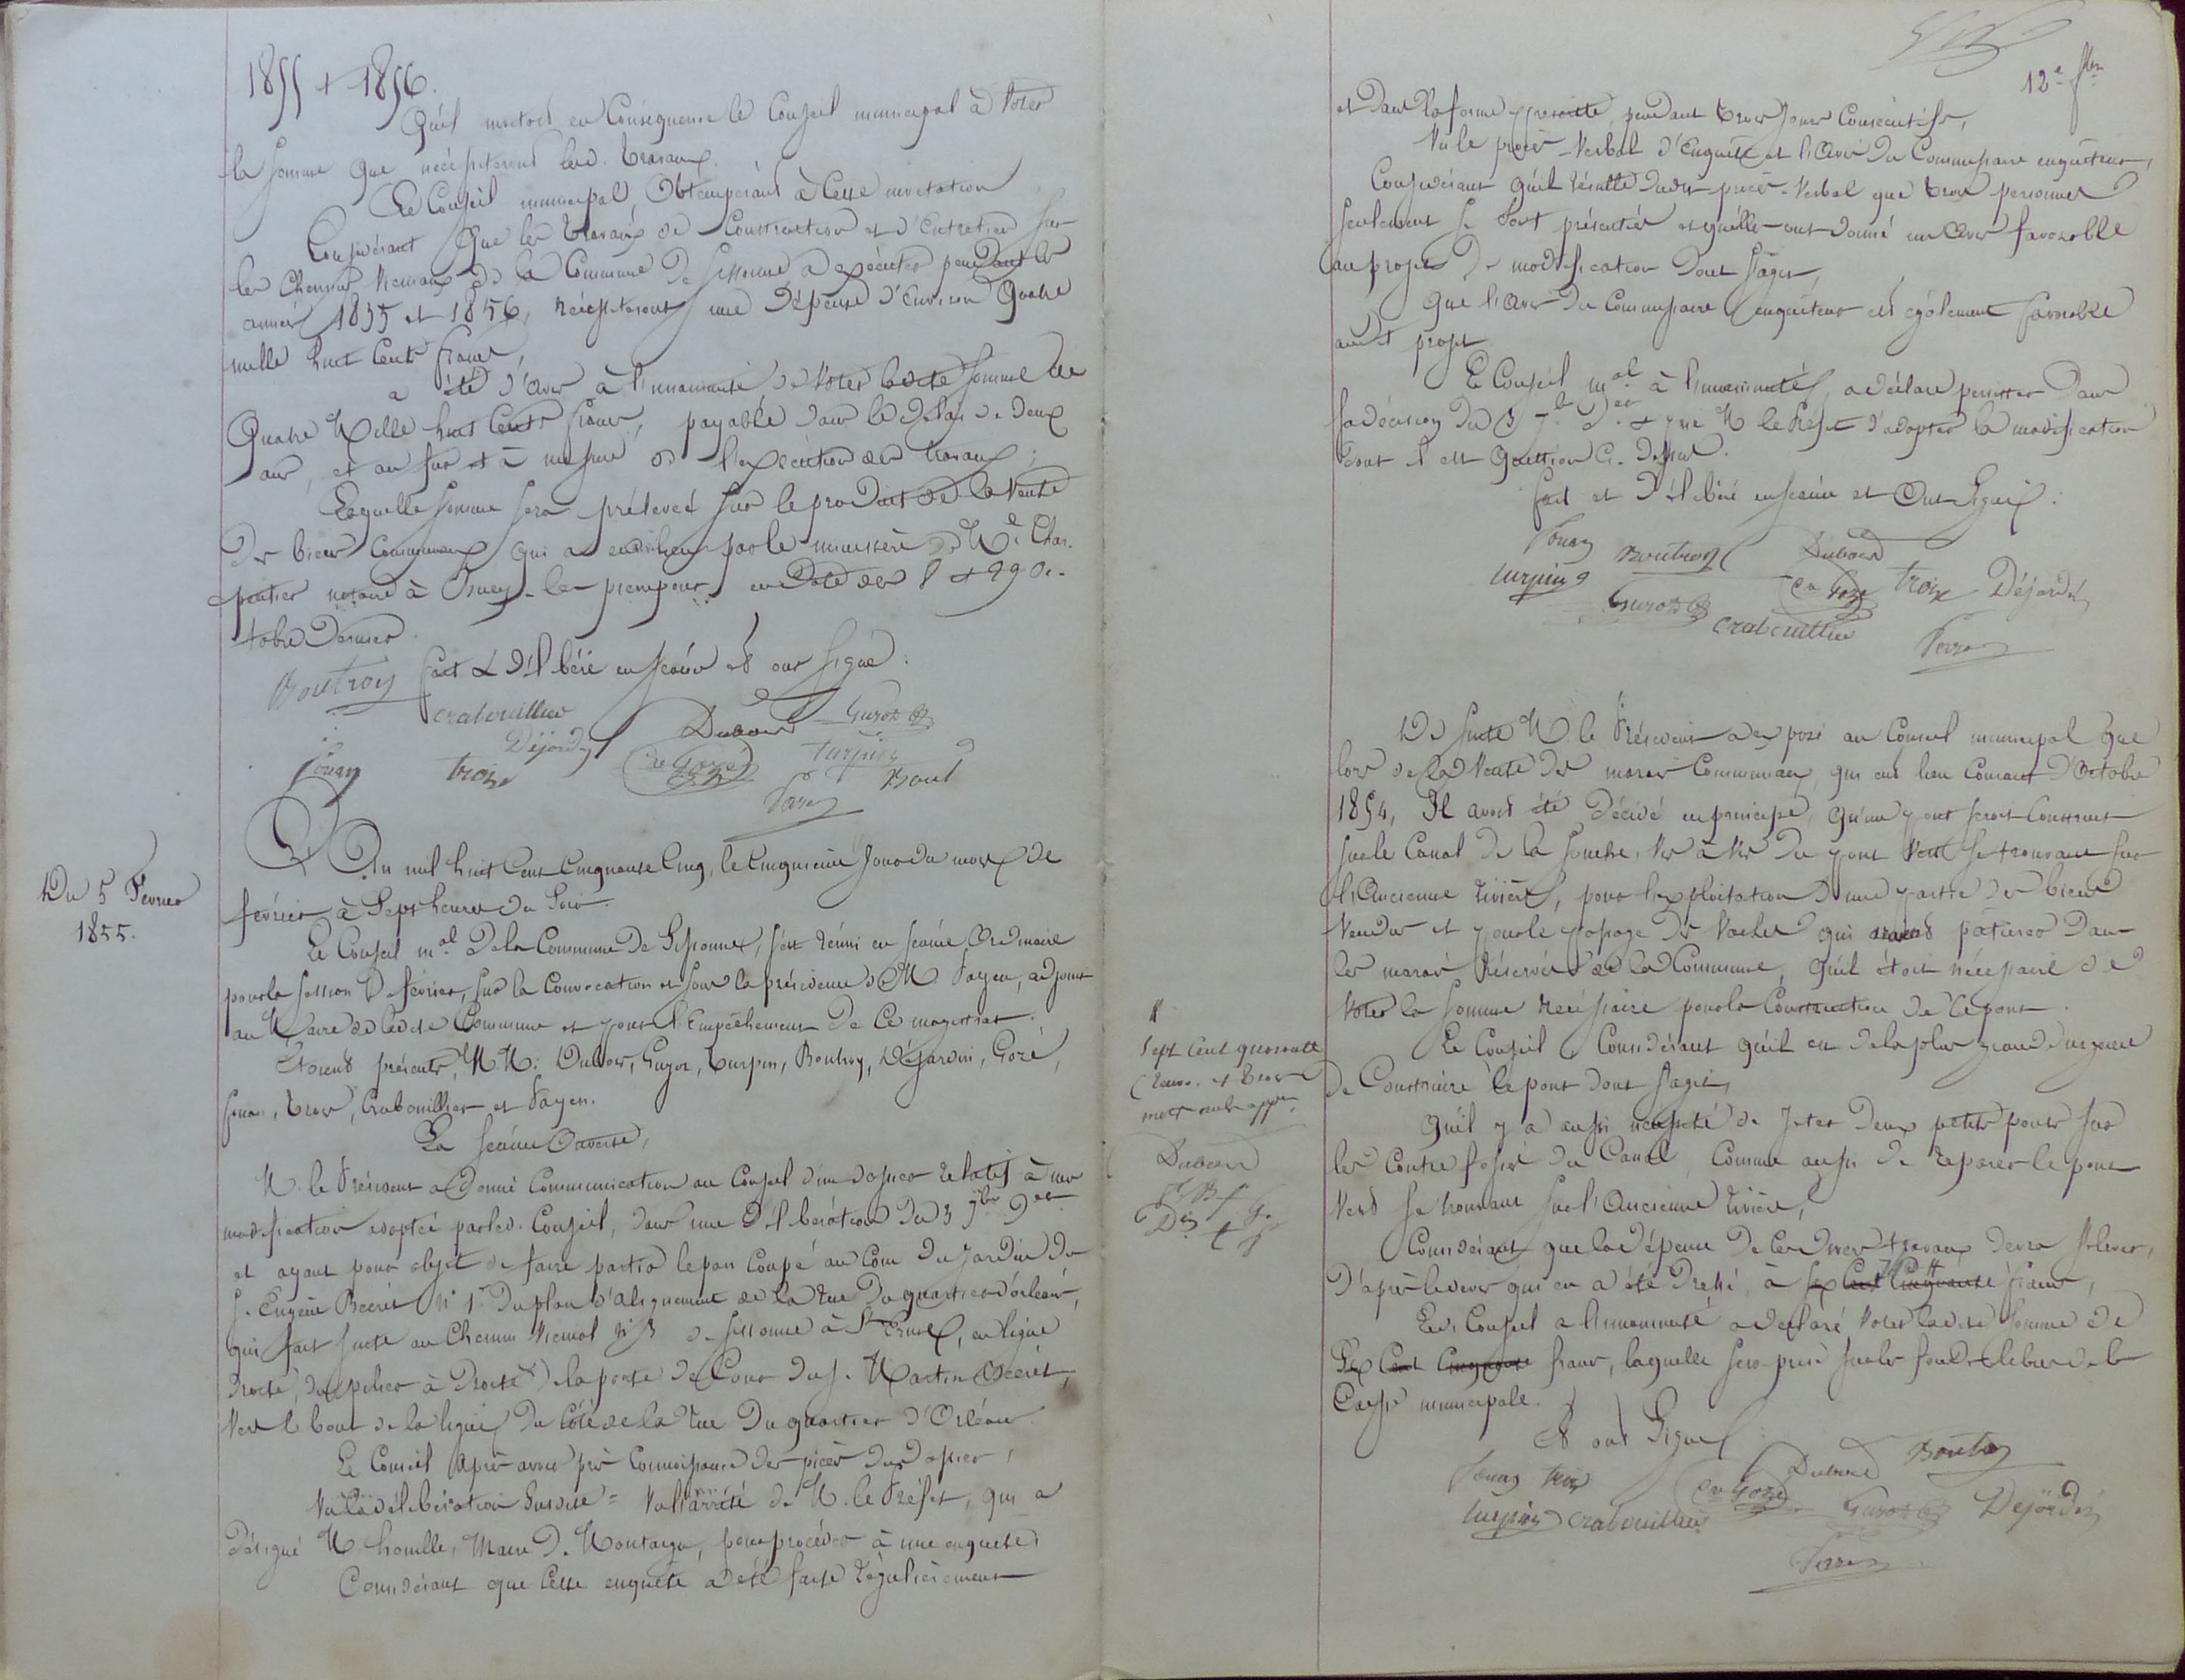 1855 & 1856.
Qu'il invitait en Conséquence le Conseil municipal à Voter
la Somme que nécessiteront lesd. travaux.
Le Conseil municipal, Obtempérant à Cette invitation
Considérant que les travaux de Construction et d'Entretien sur
les Chemins Vicinaux de la Commune de Sissonne, à exécuter pendant les
années 1855 et 1856, nécessiteront une dépense d'Environ Quatre
mille huit Cents francs,
a été d'avis à l'unanimité de Voter ladite Somme de
Quatre Mille huit Cents francs, payable dans le délai de deux
ans, et au fur et à mesure de l'exécution des travaux;
Laquelle Somme sera prélevée sur le produit de la Vente
des biens Communaux qui a eu lieu par le ministère de Me Char-
pentier notaire à Nizy-le- en date des 8 & 29 Oc-
tobre dernier.
Fait & délibéré en séance et ont signé.
Boutroy
Crabouillier
Déjardin
Dubois
Guyot
Turpin
Fouan
troix
Goze
Boul
Payen
Du 5 Février
1855.
L'An mil huit Cent Cinquante Cinq, le Cinquième Jour du mois de
février à Sept heures du Soir.
Le Conseil mal de la Commune de Sissonne, s'est réuni en séance Ordinaire
pour la session de février, sur la Convocation et sous la présidence de M. Payen, adjoint
au Maire de ladite Commune et pour l'Empêchement de Ce magistrat.
Étaient présents, M.M. Dubois, Guyot, Turpin, Boutroy, Déjardin, Gozé,
Fouan, Troix, Crabouillier et Payen.
La séance Ouverte,
M. le Président a donné Communication au Conseil d'un dossier relatif à une
modification adoptée par led. Conseil, dans une délibération du 3 7bre der
et ayant pour objet de faire partir le pan Coupé au Coin du jardin du
S. Eugène Décret N° 1er du plan d'alignement de la rue du quartier d'Orléans,
qui fait suite au Chemin Vicinal N° 3 de Sissonne à St Erme, en ligne
droite, du pilier à droite de la porte de Cour du S. Martin Décret,
Vers le bout de la ligne du Côté de la rue du quartier d'Orléans.
Le Conseil Après avoir pris Connaissance des pièces dud. dossier,
Vu la délibération Susdite = Vu l'arrêté de M. le Préfet, qui a
désigné M. houille, Maire de Montaigu, pour procéder à une enquête,
Considérant que Cette enquête a été faite régulièrement
12e fllet
et dans la forme prescrite, pendant trois jours Consécutifs,
Vu le procès-Verbal d'Enquête et l'avis du Commissaire enquêteur,
Considérant qu'il résulte dudit procès-Verbal que trois personnes
seulement se sont présentées et qu'elles ont donné un avis favorable
au projet de modification dont s'agit,
Que l'avis du Commissaire enquêteur est également favorable
audit projet
Le Conseil mal à l'unanimité, a déclaré persister dans
sa décision du 3 7b. der & prie M. le Préfet d'adopter la modification
dont il est Question Ci-dessus.
Fait et délibéré en séance et Ont Signé.
Fouan
Boutroy
Dubois
Turpin
Goze
troix
Déjardin
Guyot
Crabouillier
Payen
De suite M. le Président a exposé au Conseil municipal que
lors de la Vente des marais Communaux, qui eut lieu Courant d'Octobre
1854, Il avait été décidé en principe, qu'un pont serait Construit
sur le Canal de la Souche, Vis à Vis du pont Vert se trouvant sur
l'Ancienne rivière, pour l'exploitation d'une partie des biens
Vendus et pour le passage des Vaches qui iraient pâturer dans
les marais Réservés de la Commune, qu'il était nécessaire de
Voter la Somme nécessaire pour la Construction de Ce pont.
Le Conseil Considérant qu'il est de la plus grande urgence
de Construire le pont dont s'agit,
Qu'il y a aussi nécessité de Jeter deux petits ponts sur
les Contre fossés du Canal Comme aussi de réparer le pont
Vert se trouvant sur l'Ancienne rivière,
Considérant que la dépense de Ces divers travaux devra s'élever,
d'après le devis qui en a été dressé, à six Cent Cinquante francs,
Led. Conseil à l'unanimité a déclaré Voter ladite Somme de
Six Cent Cinquante francs, laquelle sera prise sur les fonds libres de la
Caisse municipale.
Et ont Signé
Sept Cent quarante
francs et trois
mots nuls appr.
Dubois
Fouan
troix
Goze
Dubois
Boutroy
Turpin
Crabouillier
Guyot
Déjardin
Payen